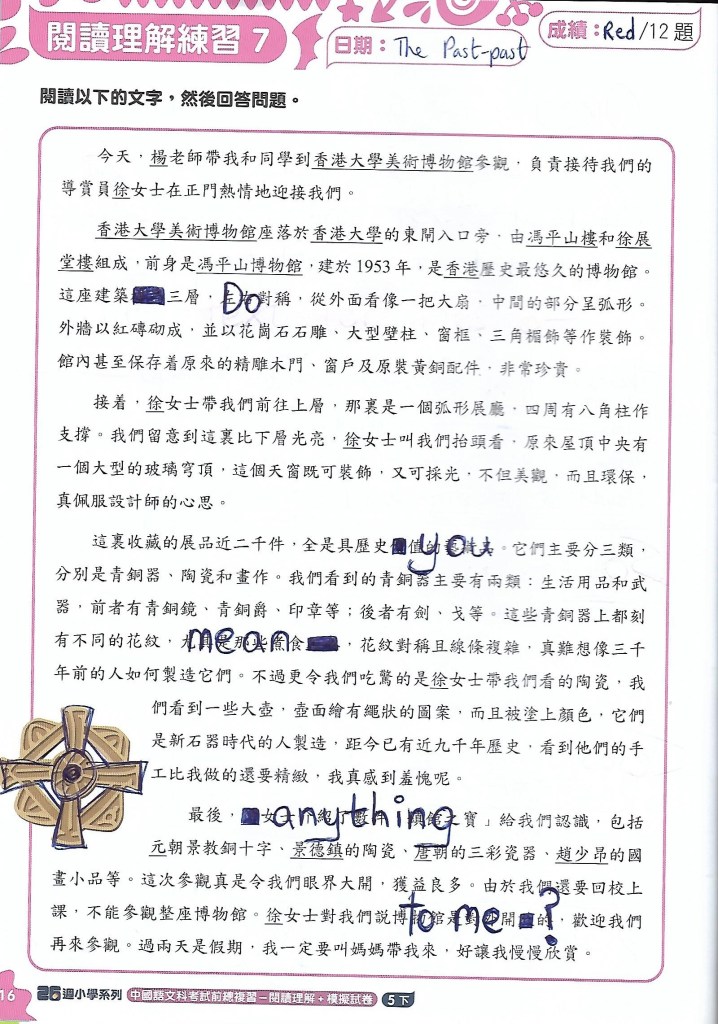 閱讀理解練習 7
日期：The Past-past
成績：Red/12 題
閱讀以下的文字，然後回答問題。
今天，楊老師帶我和同學到香港大學美術博物館參觀，負責接待我們的
導賞員徐女士在正門熱情地迎接我們。
香港大學美術博物館座落於香港大學的東閘入口旁，由馮平山樓和徐展
堂樓組成，前身是馮平山博物館，建於 1953 年，是香港歷史最悠久的博物館。
這座建築三層，Do對稱，從外面看像一把大扇，中間的部分呈弧形。
外牆以紅磚砌成，並以花崗石石雕、大型壁柱、窗框、三角楣飾等作裝飾。
館內甚至保存着原來的精雕木門、窗戶及原裝黃銅配件，非常珍貴。
接着，徐女士帶我們前往上層，那裏是一個弧形展廳，四周有八角柱作
支撐。我們留意到這裏比下層光亮，徐女士叫我們抬頭看，原來屋頂中央有
一個大型的玻璃穹頂，這個天窗既可裝飾，又可採光，不但美觀，而且環保，
真佩服設計師的心思。
這裏收藏的展品近二千件，全是具歷史值的you。它們主要分三類，
分別是青銅器、陶瓷和畫作。我們看到的青銅器主要有兩類：生活用品和武
器，前者有青銅鏡、青銅爵、印章等；後者有劍、戈等。這些青銅器上都刻
有不同的花紋，mean食，花紋對稱且線條複雜，真難想像三千
年前的人如何製造它們。不過更令我們吃驚的是徐女士帶我們看的陶瓷，我
們看到一些大壺，壺面繪有繩狀的圖案，而且被塗上顏色，它們
是新石器時代的人製造，距今已有近九千年歷史，看到他們的手
工比我做的還要精緻，我真感到羞愧呢。
最後，女士anything之寶」給我們認識，包括
元朝景教銅十字、景德鎮的陶瓷、唐朝的三彩瓷器、趙少昂的國
畫小品等。這次參觀真是令我們眼界大開，獲益良多。由於我們還要回校上
課，不能參觀整座博物館。徐女士對我們說博to me是對外開的?，歡迎我們
再來參觀。過兩天是假期，我一定要叫媽媽帶我來，好讓我慢慢欣賞。
16 26週小學系列 中國語文科考試前總複習－閱讀理解＋模擬試卷 5下